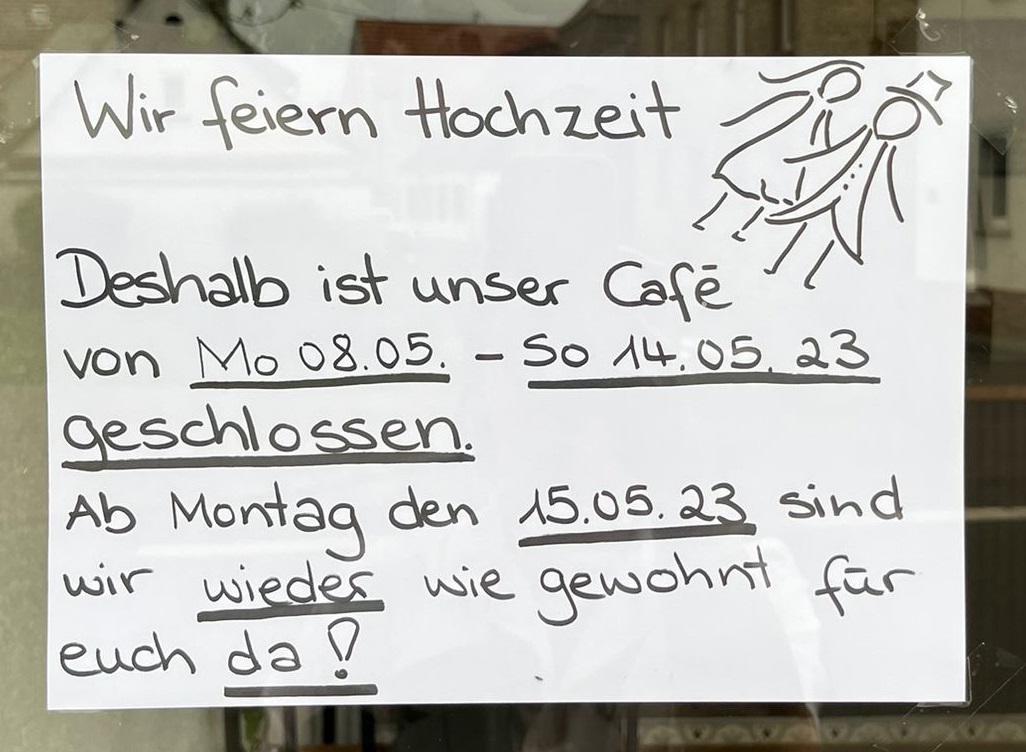 Wir feiern Hochzeit
Deshalb ist unser Café
von Mo 08.05. - So 14.05.23
geschlossen.
Ab Montag den 15.05.23 sind
wir wieder wie gewohnt für
euch da!